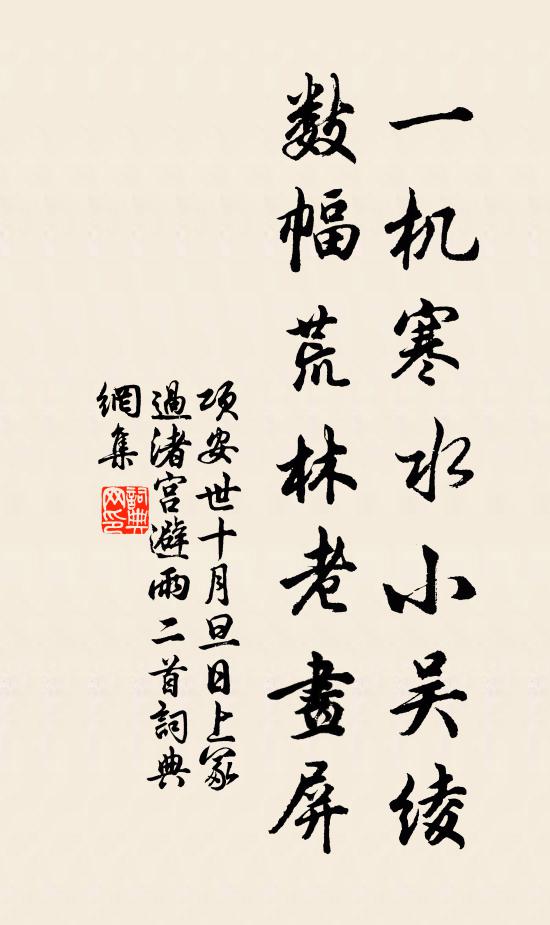 一机寒水小吴绫
数幅荒林老畫屏
项安世十月旦日上冢
過渚宫避雨二首詞典
網集
詞典
网印